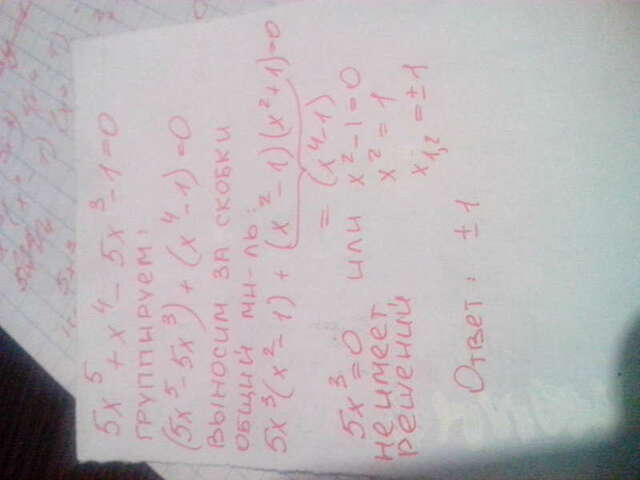 5x⁵ + x⁴ - 5x³ - 1 = 0
группируем:
(5x⁵ - 5x³) + (x⁴ - 1) = 0
выносим за скобки
общий мн-ль:
5x³(x² - 1) + (x² - 1)(x² + 1) = 0
= (x⁴ - 1)
5x³ = 0 или x² - 1 = 0
не имеет x² = 1
решений x₁,₂ = ± 1
Ответ: ± 1